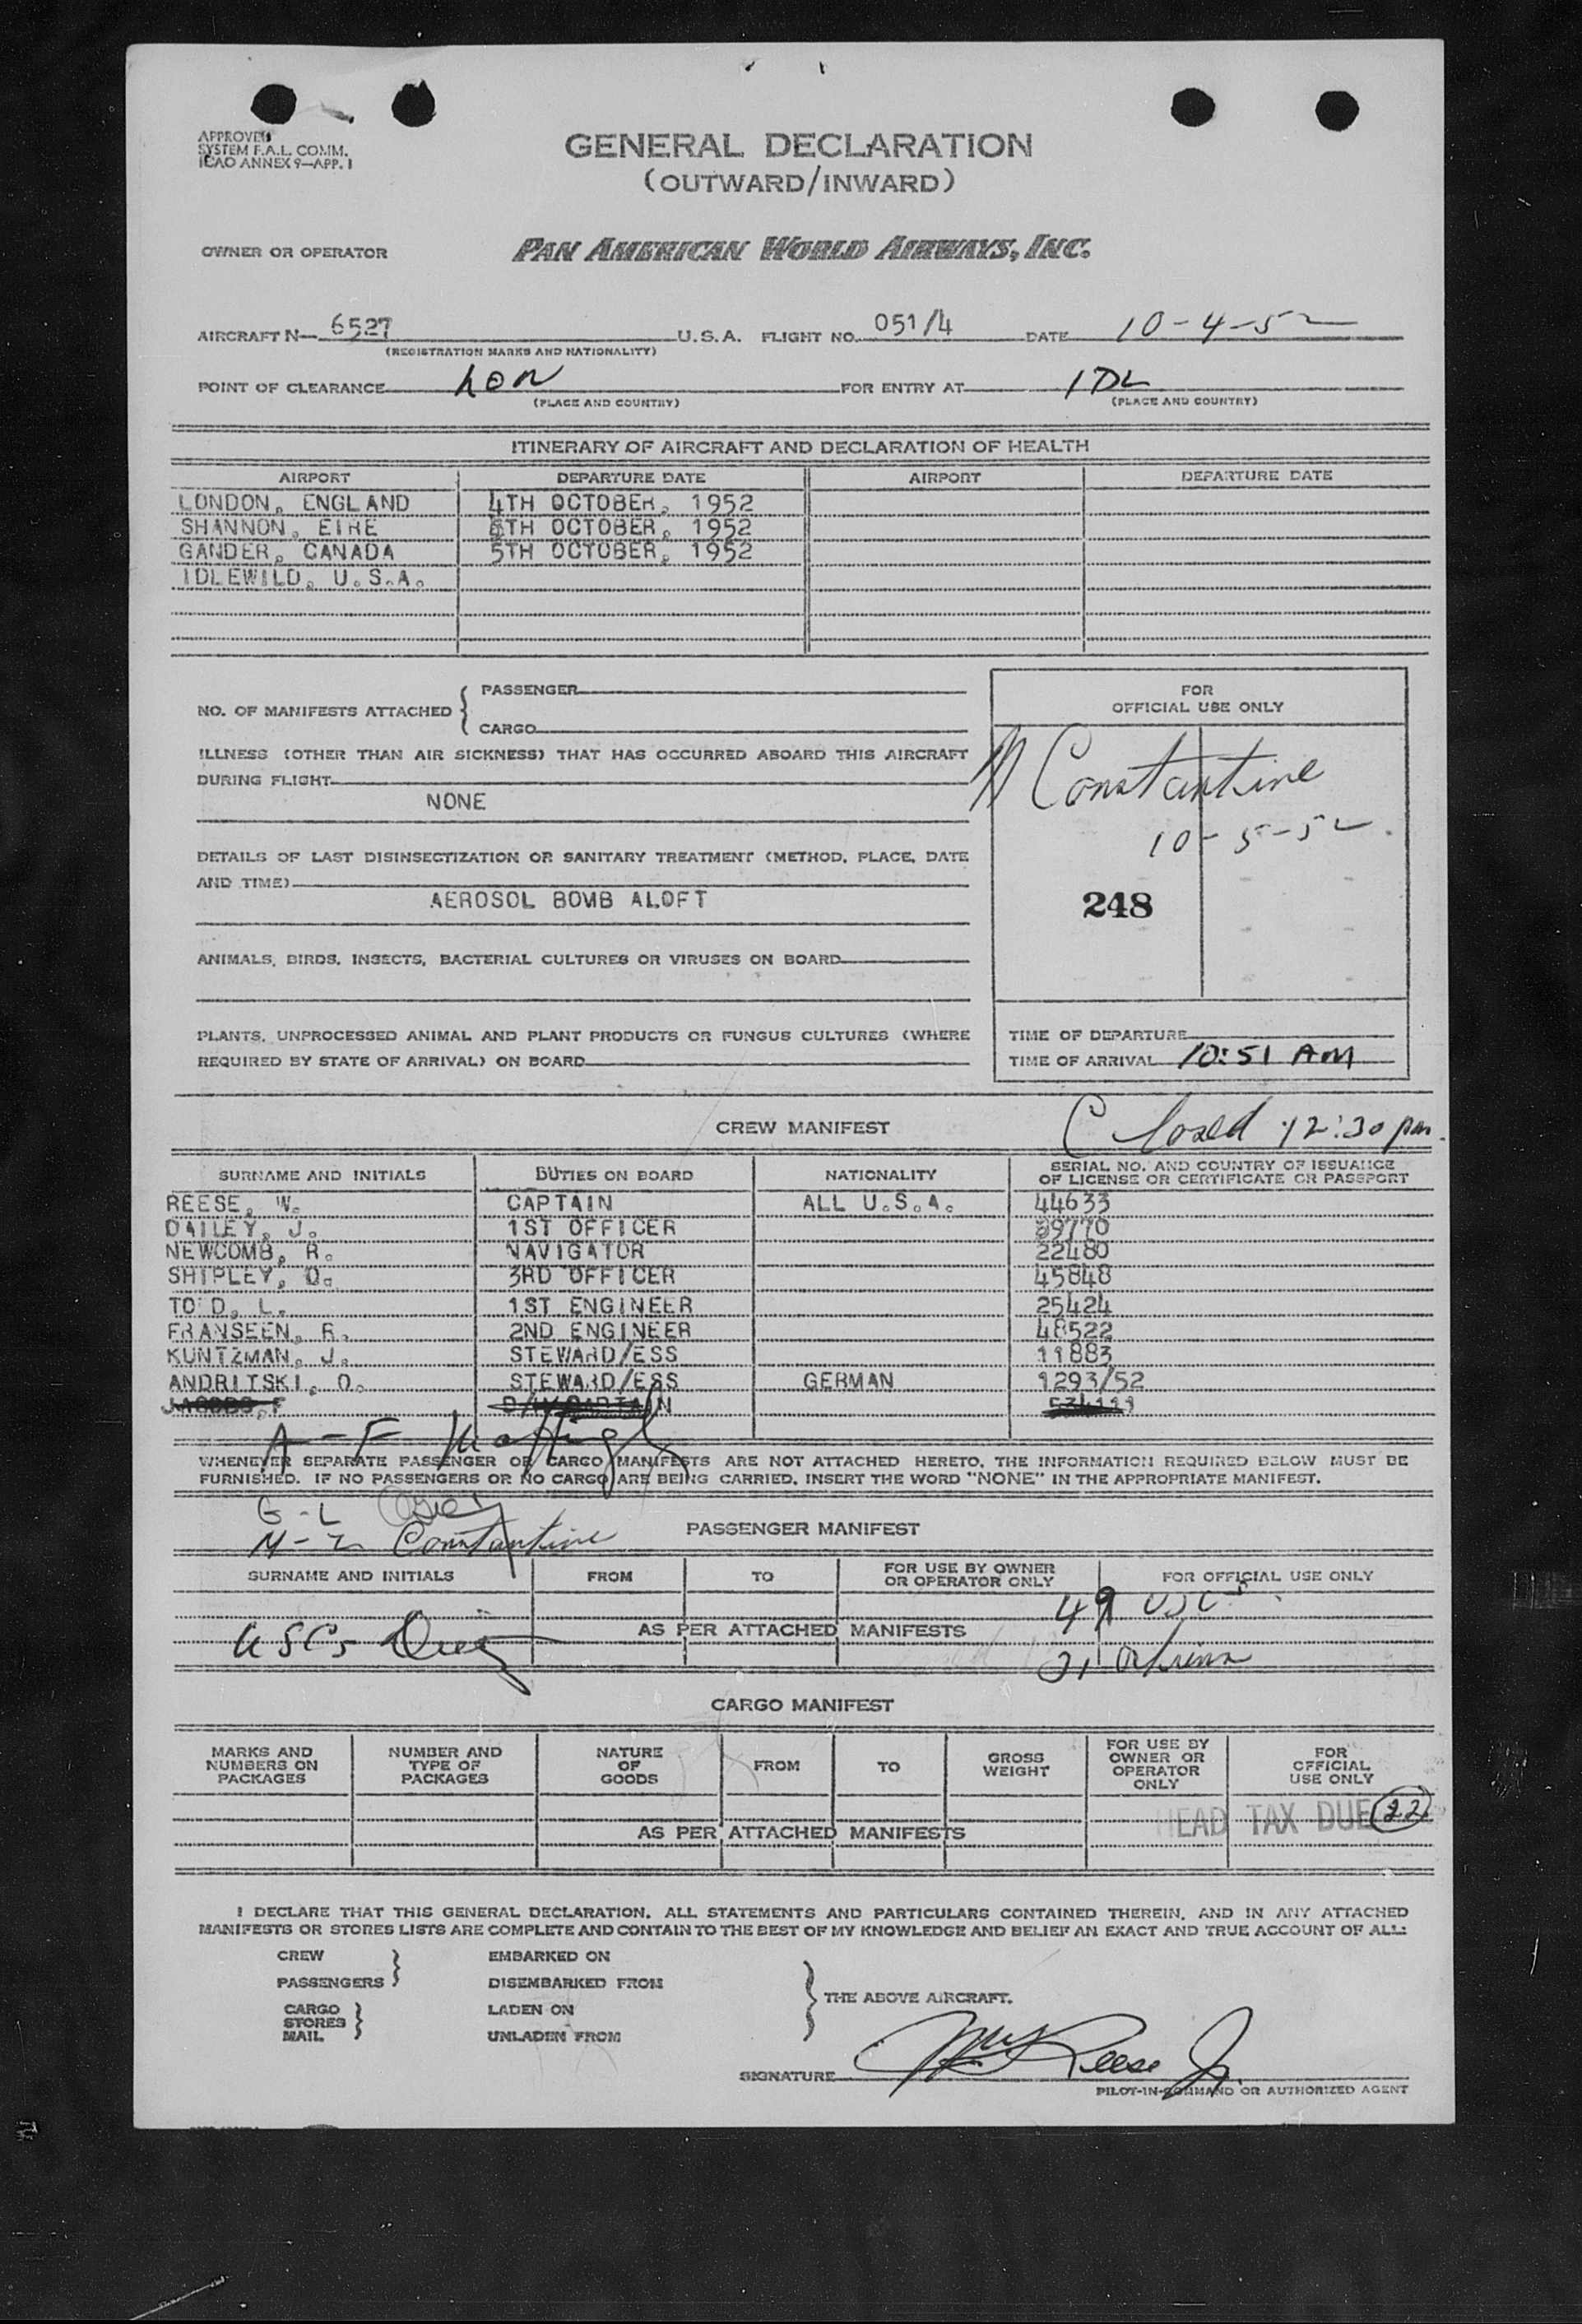 APPROVED
SYSTEM F.A.L. COMM.
ICAO ANNEX 9—APP. 1
GENERAL DECLARATION
(OUTWARD/INWARD)
OWNER OR OPERATOR PAN AMERICAN WORLD AIRWAYS, INC.
AIRCRAFT N— 6527 U.S.A. FLIGHT NO. 051/4 DATE 10-4-52
(REGISTRATION MARKS AND NATIONALITY)
POINT OF CLEARANCE LON FOR ENTRY AT IDL
(PLACE AND COUNTRY) (PLACE AND COUNTRY)
ITINERARY OF AIRCRAFT AND DECLARATION OF HEALTH
AIRPORT DEPARTURE DATE AIRPORT DEPARTURE DATE
LONDON, ENGLAND 4TH OCTOBER, 1952
SHANNON, EIRE TH OCTOBER, 1952
GANDER, CANADA 5TH OCTOBER, 1952
IDLEWILD, U.S.A.
NO. OF MANIFESTS ATTACHED { PASSENGER
CARGO
FOR
OFFICIAL USE ONLY
ILLNESS (OTHER THAN AIR SICKNESS) THAT HAS OCCURRED ABOARD THIS AIRCRAFT
DURING FLIGHT
NONE
Constantine
10-5-52
DETAILS OF LAST DISINSECTIZATION OR SANITARY TREATMENT (METHOD, PLACE, DATE
AND TIME)
AEROSOL BOMB ALOFT
248
ANIMALS, BIRDS, INSECTS, BACTERIAL CULTURES OR VIRUSES ON BOARD
PLANTS, UNPROCESSED ANIMAL AND PLANT PRODUCTS OR FUNGUS CULTURES (WHERE
REQUIRED BY STATE OF ARRIVAL) ON BOARD
TIME OF DEPARTURE
TIME OF ARRIVAL 10:51 AM
CREW MANIFEST Closed 12:30 pm.
SURNAME AND INITIALS DUTIES ON BOARD NATIONALITY SERIAL NO. AND COUNTRY OF ISSUANCE
OF LICENSE OR CERTIFICATE OR PASSPORT
REESE, W. CAPTAIN ALL U.S.A. 44633
DAILEY, J. 1ST OFFICER 39770
NEWCOMB, R. NAVIGATOR 22480
SHIPLEY, O. 3RD OFFICER 45848
TODD, L. 1ST ENGINEER 25424
FRANSEEN, R. 2ND ENGINEER 48522
KUNTZMAN, J. STEWARD/ESS 11883
ANDRITSKI, O. STEWARD/ESS GERMAN 1293/52
A-F
WHENEVER SEPARATE PASSENGER OR CARGO MANIFESTS ARE NOT ATTACHED HERETO, THE INFORMATION REQUIRED BELOW MUST BE
FURNISHED. IF NO PASSENGERS OR NO CARGO ARE BEING CARRIED, INSERT THE WORD "NONE" IN THE APPROPRIATE MANIFEST.
G-L
M-Z Constantine
PASSENGER MANIFEST
SURNAME AND INITIALS FROM TO FOR USE BY OWNER
OR OPERATOR ONLY FOR OFFICIAL USE ONLY
49 USCs
USCs
AS PER ATTACHED MANIFESTS
21 aliens
CARGO MANIFEST
MARKS AND
NUMBERS ON
PACKAGES
NUMBER AND
TYPE OF
PACKAGES
NATURE
OF
GOODS
FROM
TO
GROSS
WEIGHT
FOR USE BY
OWNER OR
OPERATOR
ONLY
FOR
OFFICIAL
USE ONLY
HEAD TAX DUE 22
AS PER ATTACHED MANIFESTS
I DECLARE THAT THIS GENERAL DECLARATION, ALL STATEMENTS AND PARTICULARS CONTAINED THEREIN, AND IN ANY ATTACHED
MANIFESTS OR STORES LISTS ARE COMPLETE AND CONTAIN TO THE BEST OF MY KNOWLEDGE AND BELIEF AN EXACT AND TRUE ACCOUNT OF ALL:
CREW
PASSENGERS }
EMBARKED ON
DISEMBARKED FROM
CARGO
STORES
MAIL }
LADEN ON
UNLADEN FROM
} THE ABOVE AIRCRAFT.
SIGNATURE Wm Reese Jr.
PILOT-IN-COMMAND OR AUTHORIZED AGENT